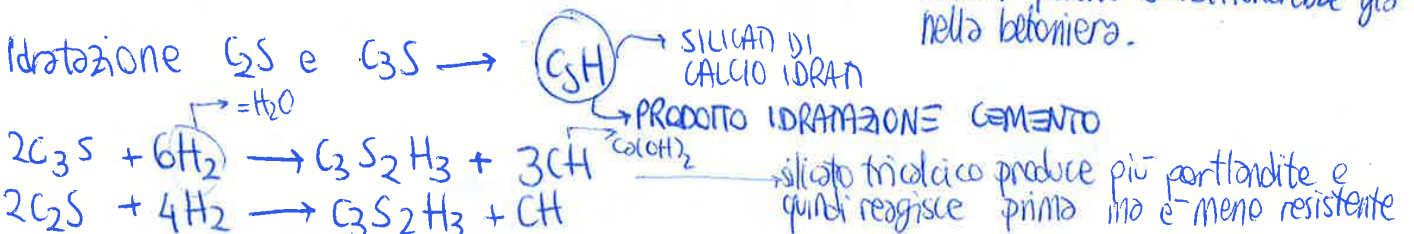 nella betoniera.
Idratazione C2S e C3S → CSH → SILICATI DI
CALCIO IDRATI
=H2O
→ PRODOTTO IDRATAZIONE CEMENTO
2C3S + 6H2 → C3S2H3 + 3CH Ca(OH)2 → silicato tricalcico produce più portlandite e
2C2S + 4H2 → C3S2H3 + CH quindi reagisce prima ma è meno resistente